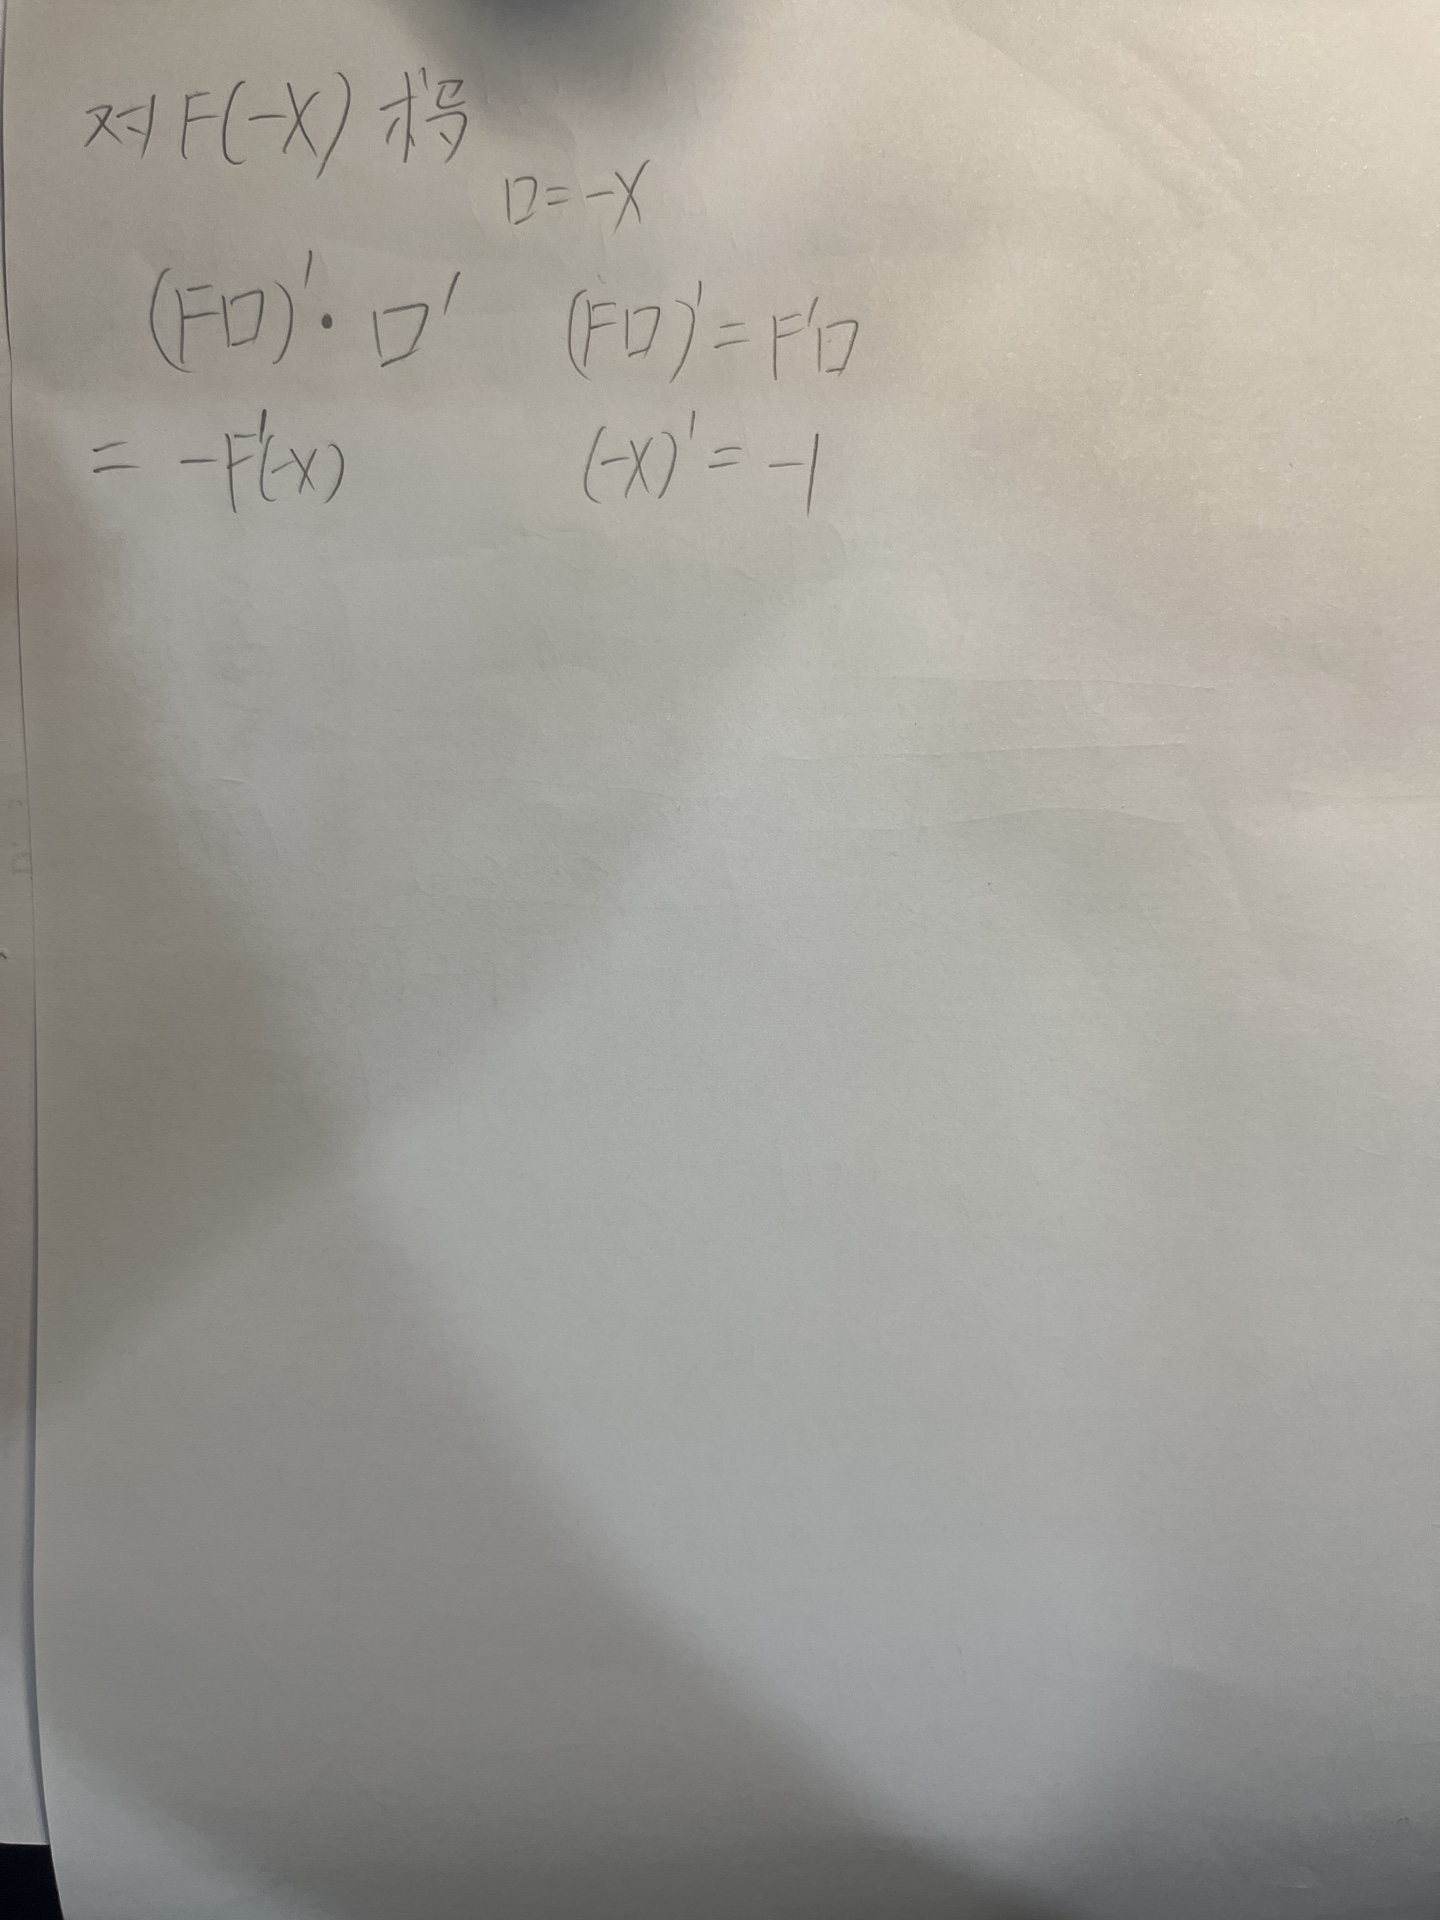 对F(-X)求导
□=-X
(F□)'·□' (F□)'=F'□
=-F'(-X) (-X)'=-1